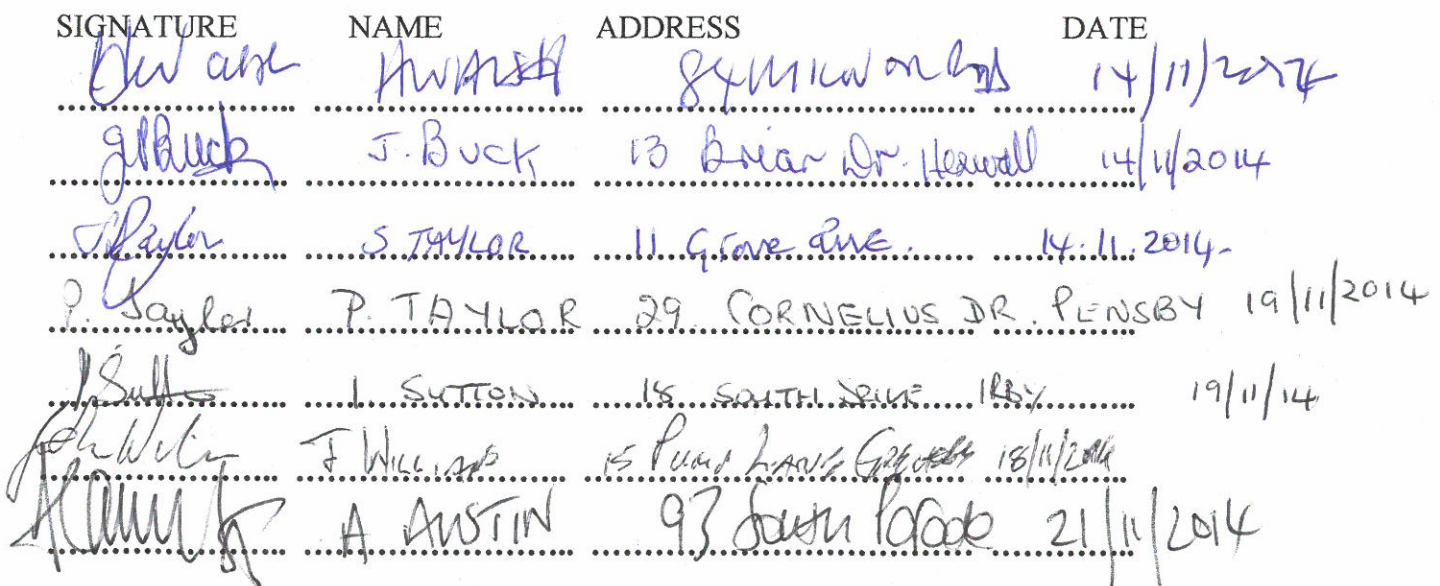 SIGNATURE NAME ADDRESS DATE
14/11/2014
J. Buck 13 Briar Dr. Heswall 14/11/2014
S. TAYLOR 11 Grove 14.11.2014.
P. Taylor P. TAYLOR 29 CORNELIUS DR. PENSBY 19/11/2014
I. SUTTON 18 SOUTH DRIVE IRBY 19/11/14
J WILLIAMS 15 PUMP LANE GREASBY 18/11/2014
A AUSTIN 93 South Parade 21/11/2014